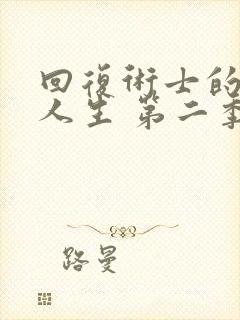 回復術士的
人生 第二季
路曼